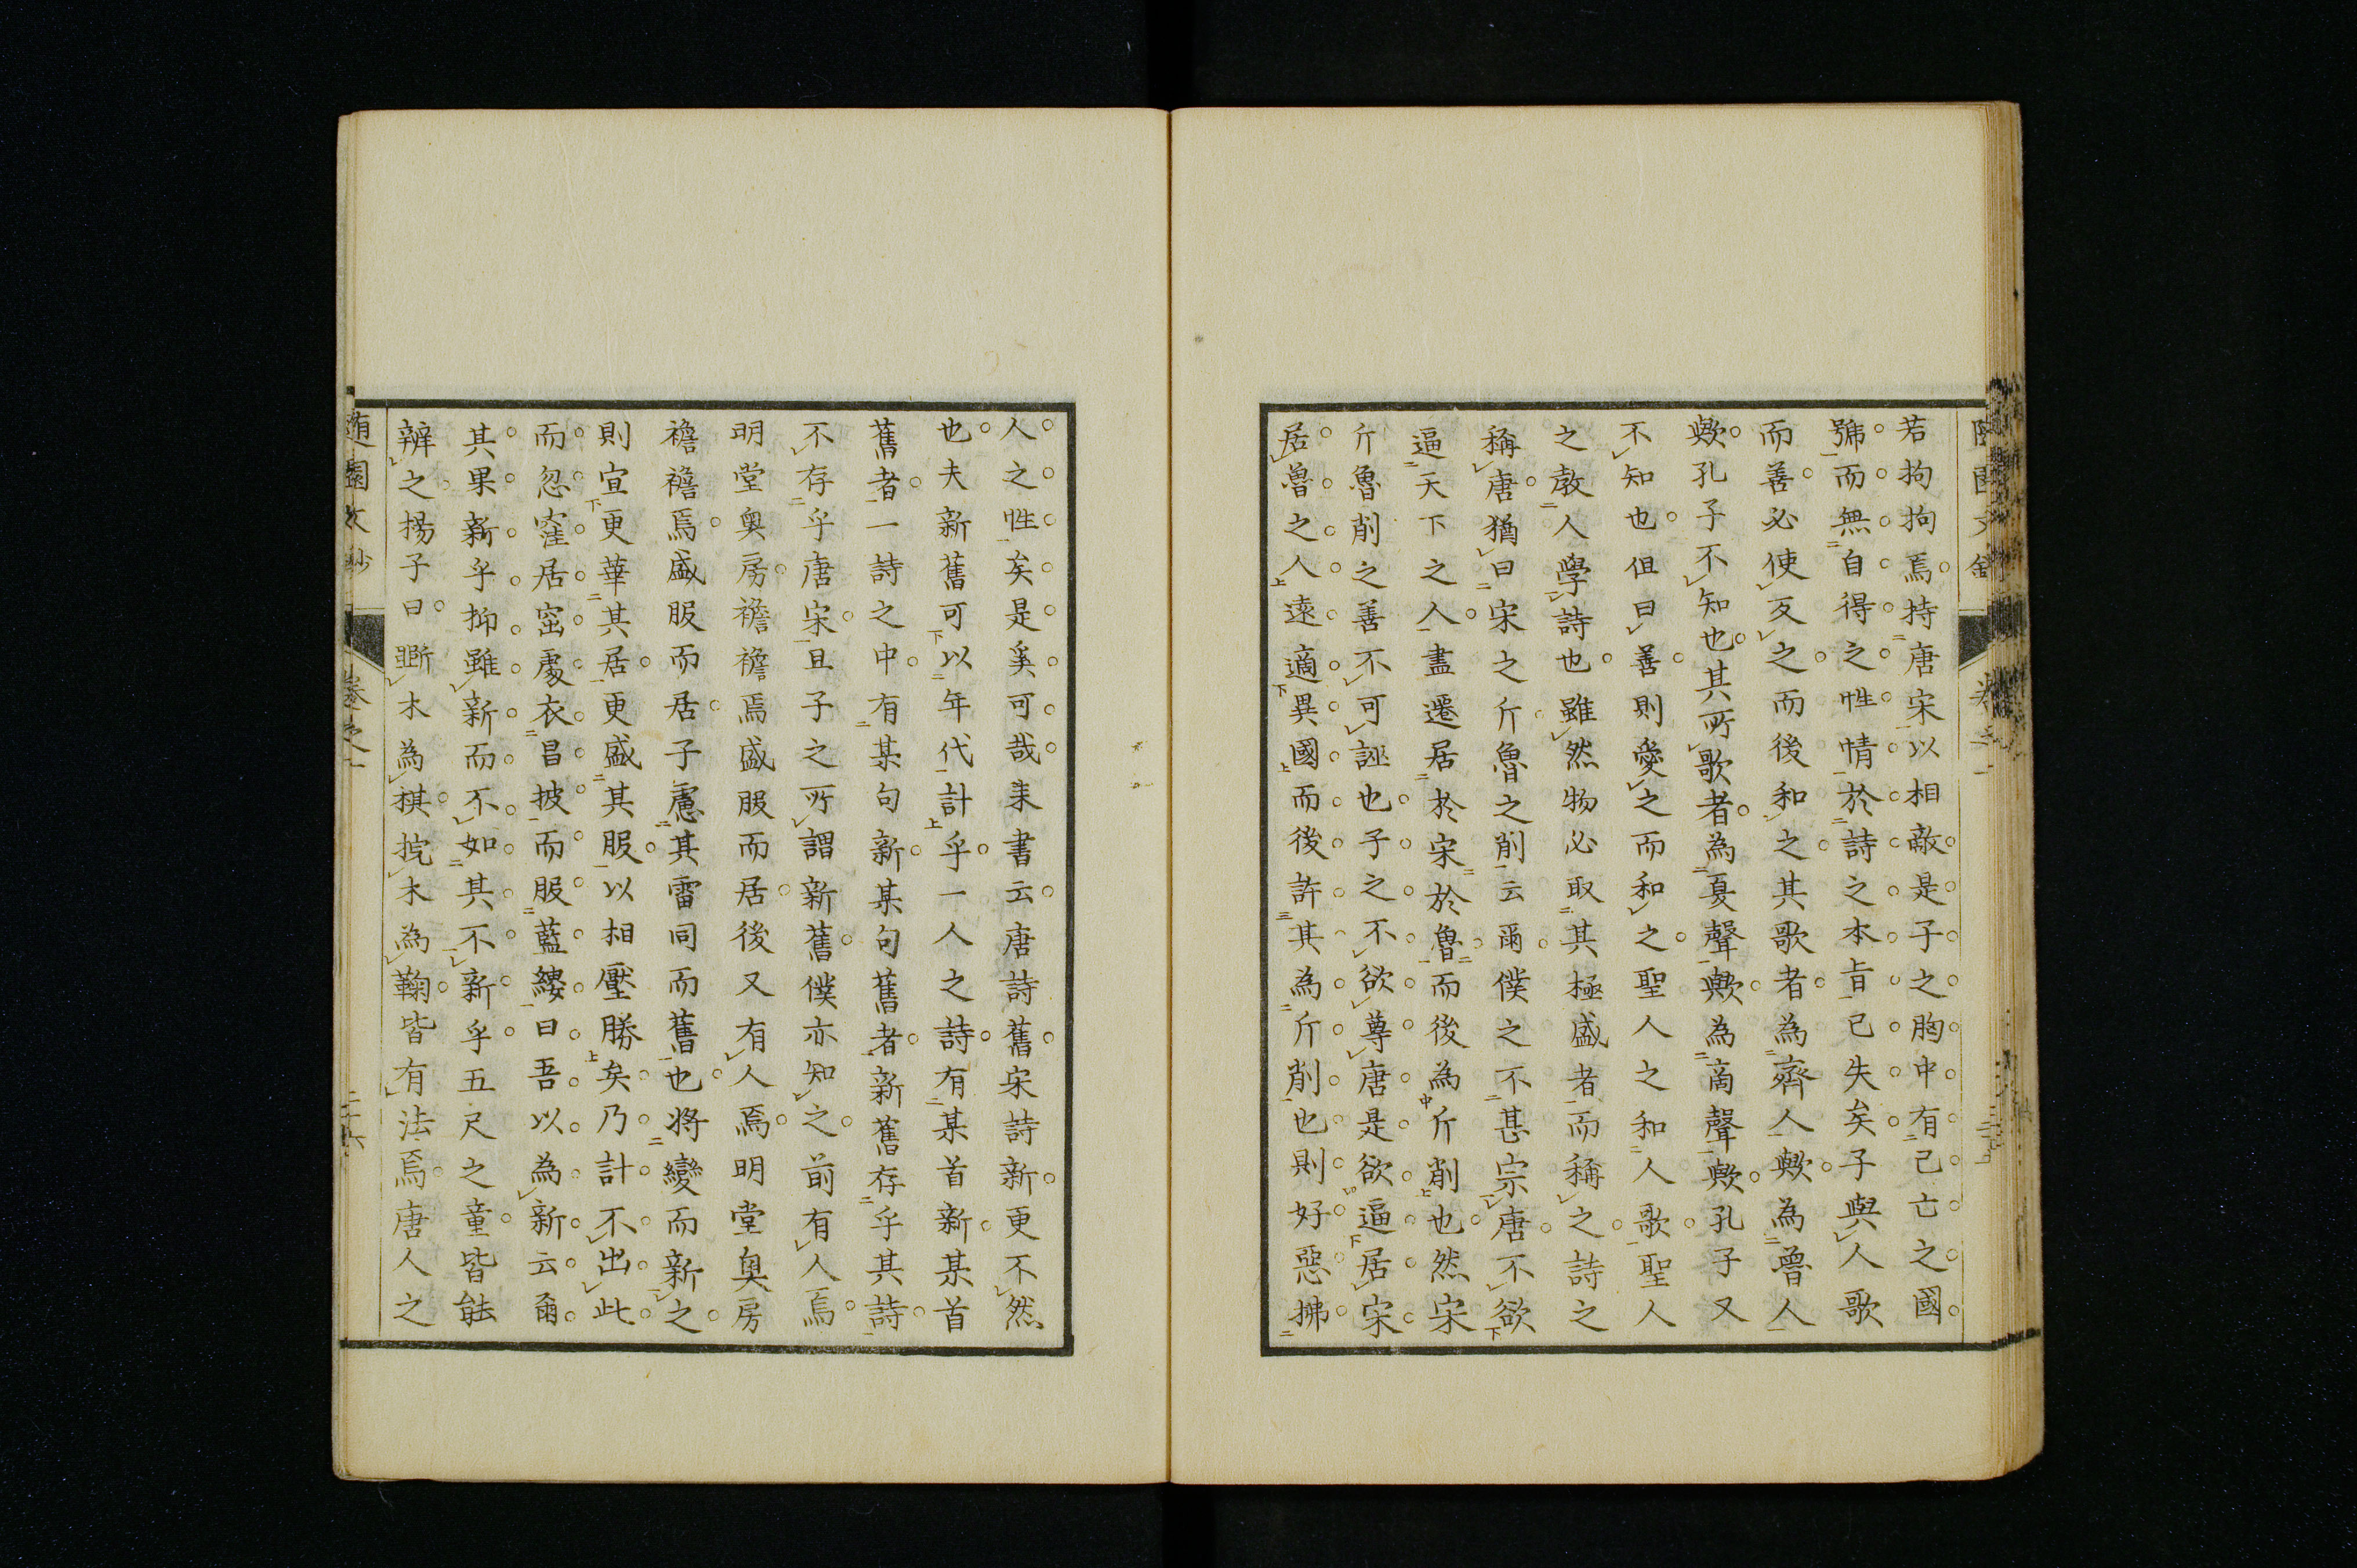 若拘拘焉持唐宋以相敵是子之胸中有己亡之國
號而無自得之性情於詩之本旨已失矣子與人歌
而善必使反之而後和之其歌者為齊人歟為魯人
歟孔子不知也其所歌者為夏聲歟為商聲歟孔子又
不知也但曰善則愛之而和之聖人之和人歌聖人
之教人學詩也雖然物必取其極盛者而稱之詩之
稱唐猶曰宋之斤魯之削云爾僕之不甚宗唐不欲
逼天下之人盡遷居於宋於魯而後為斤削也然宋
斤魯削之善不可誣也子之不欲尊唐是欲逼居宋
居魯之人遠適異國而後許其為斤削也則好惡拂
人之性矣是奚可哉来書云唐詩舊宋詩新更不然
也夫新舊可以年代計乎一人之詩有某首新某首
舊者一詩之中有某句新某句舊者新舊存乎其詩
不存乎唐宋且子之所謂新舊僕亦知之前有人焉
明堂奥房襜襜焉盛服而居後又有人焉明堂奥房
襜襜焉盛服而居子慮其雷同而舊也將變而新之
則宜更華其居更盛其服以相壓勝矣乃計不出此
而忽窪居窟處衣昌披而服藍縷曰吾以為新云爾
其果新乎抑雖新而不如其不新乎五尺之童皆能
辨之揚子曰斷木為棋捖木為鞠皆有法焉唐人之
隨園文鈔 卷之 二十六